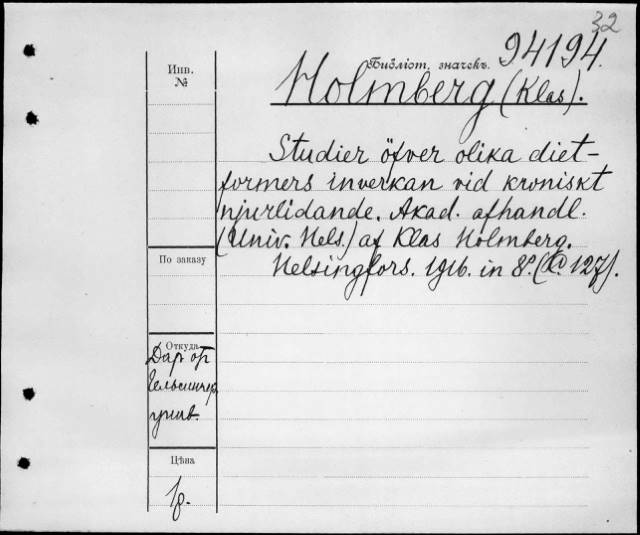 32
Библіот. значекъ. 94194.
Инв.
№
Holmberg (Klas).
Studier öfver olika diet-
formers inverkan vid kroniskt
njurlidande. Akad. afhandl.
(Univ. Hels.) af Klas Holmberg.
Helsingfors. 1916. in 8º. ( 127).
По заказу
Откуда
Дар от
Гельсингф.
унив.
Цѣна
1р.